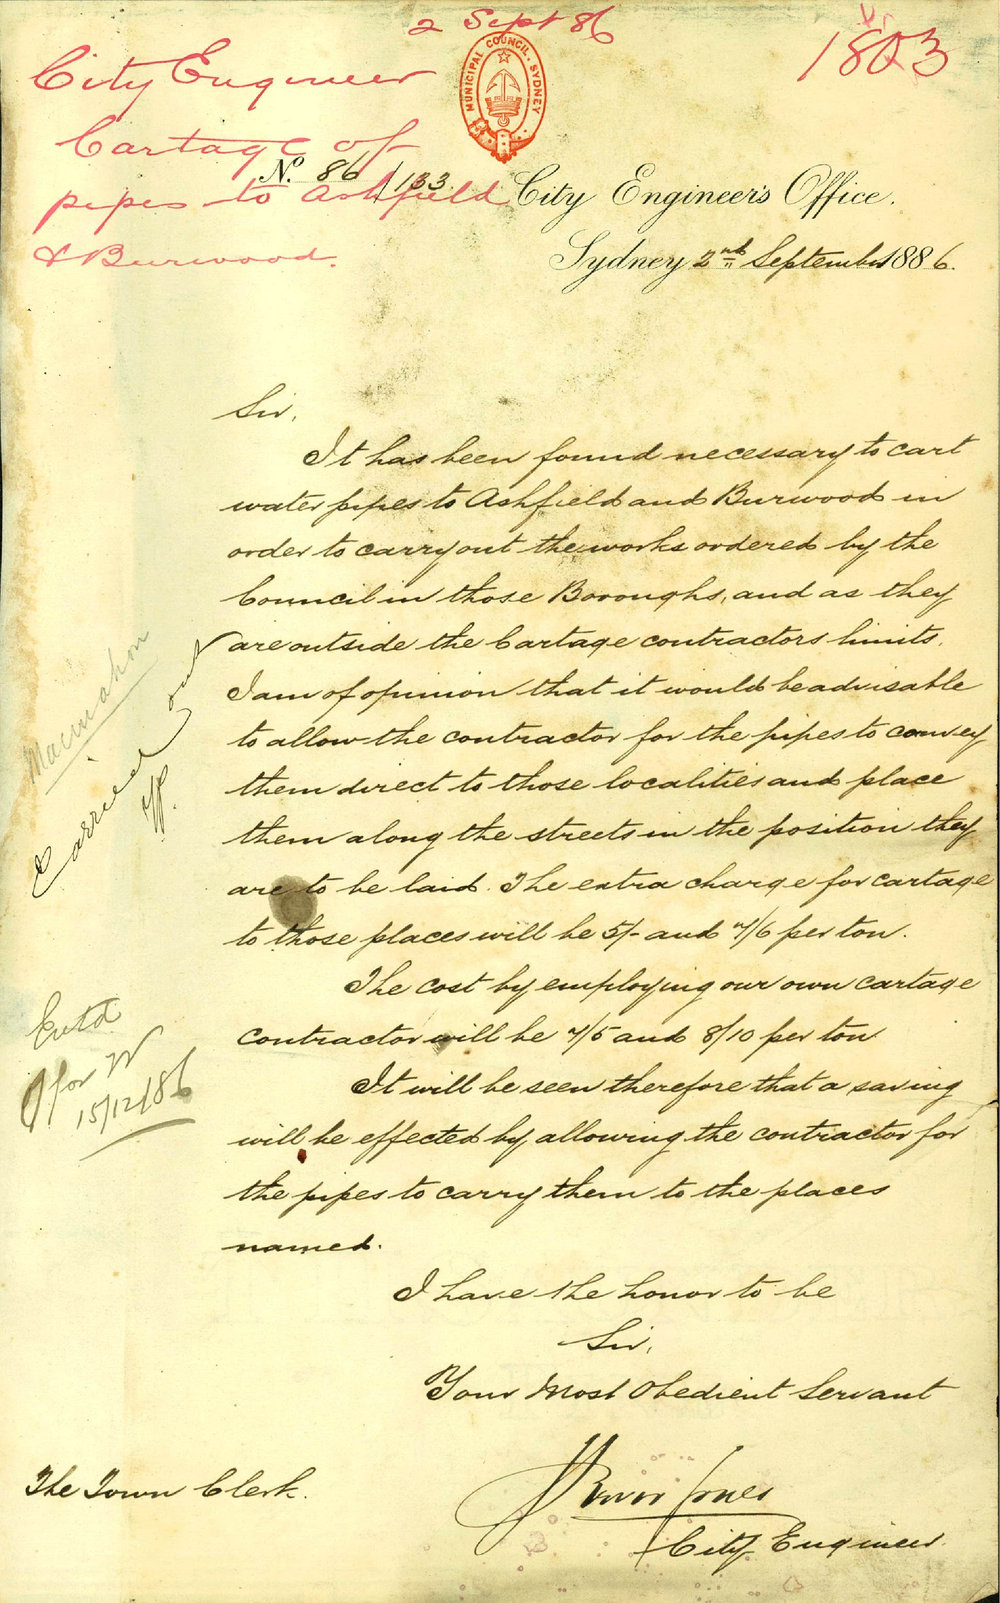 2 Sept 86
1803
City Engineer
Cartage of
pipes to Ashfield
& Burwood.
MUNICIPAL COUNCIL. SYDNEY
No. 86/133.
City Engineer's Office.
Sydney 2nd September 1886.
Sir,
It has been found necessary to cart
water pipes to Ashfield and Burwood in
order to carry out the works ordered by the
Council in those Boroughs, and as they
are outside the Cartage contractors limits,
I am of opinion that it would be advisable
to allow the contractor for the pipes to convey
them direct to those localities and place
them along the streets in the position they
are to be laid. The extra charge for cartage
to those places will be 5/- and 7/6 per ton.
The cost by employing our own cartage
contractor will be 7/5 and 8/10 per ton
It will be seen therefore that a saving
will be effected by allowing the contractor for
the pipes to carry them to the places
named.
I have the honor to be
Sir,
Your Most Obedient Servant
Trevor Jones
City Engineer.
The Town Clerk.
Macmahon
Carried out
Entd
for
15/12/86